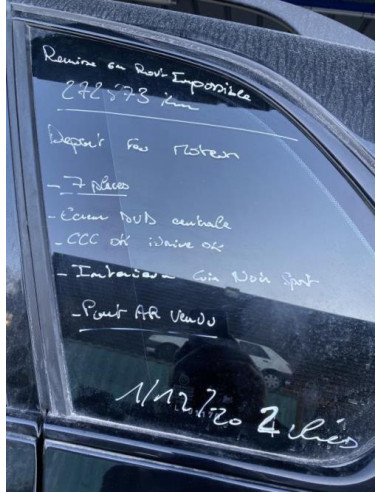 Remise en Rout Impossible
272573 km
Depart feu moteur
- 7 places
- Ecran DVD centrale
- CCC OK iDrive OK
- Interieur Cuir Noir Sport
- Pont AR vendu
1/12/20 2 clés